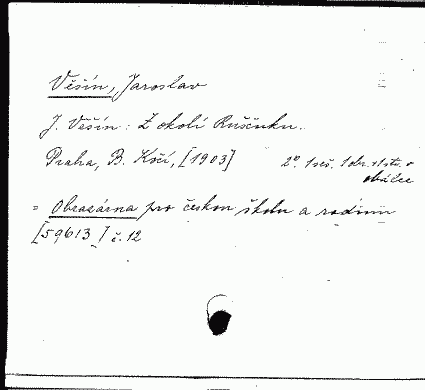 Věšín, Jaroslav
J. Věšín: Z okolí Ruščuku.
Praha, B. Kočí, [1903] 2°. 1 seš. 1 obr. + 1 str. v
obálce
= Obrazárna pro českou školu a rodinu
[59613] č. 12